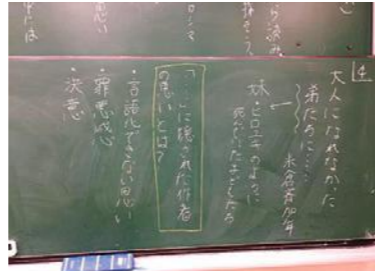 4
大人になれなかった
弟たちに……
米倉斉加年
妹・ヒロユキのように
死んでいった子どもたち
「……」に隠された作者
の思いとは?
・言語化できない思い
・罪悪感
・決意